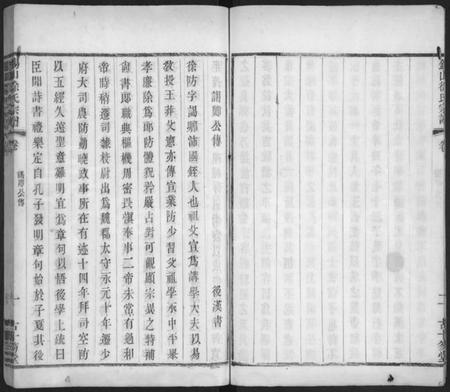 謁卿公傳
後漢書
徐防字謁卿沛國銍人也祖父宣為講學大夫以易
教授王莽父憲亦傳宣業防少習父祖學永平中舉
孝廉除為郎防體貌矜嚴占對可觀顯宗異之特補
尚書郎職典樞機周密畏慎奉事二帝未嘗有過和
帝時稍遷司隸校尉出為魏郡太守永元十年遷少
府大司農防勤曉政事所在有迹十四年拜司空防
以五經久遠聖意難明宜為章句以悟後學上疏曰
臣聞詩書禮樂定自孔子發明章句始於子夏其後
錫山徐氏宗譜
卷
謁卿公傳
一